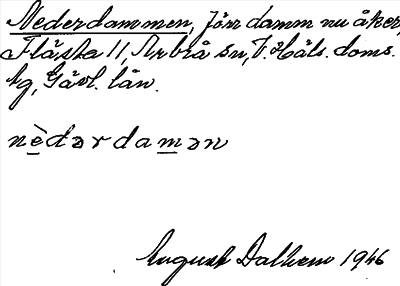 Nederdammen, förr damm nu åker,
Flästa 11, Arbrå sn, V. Häls. doms.
Gävl. län.
nèdərdamən
August Dalhem 1946